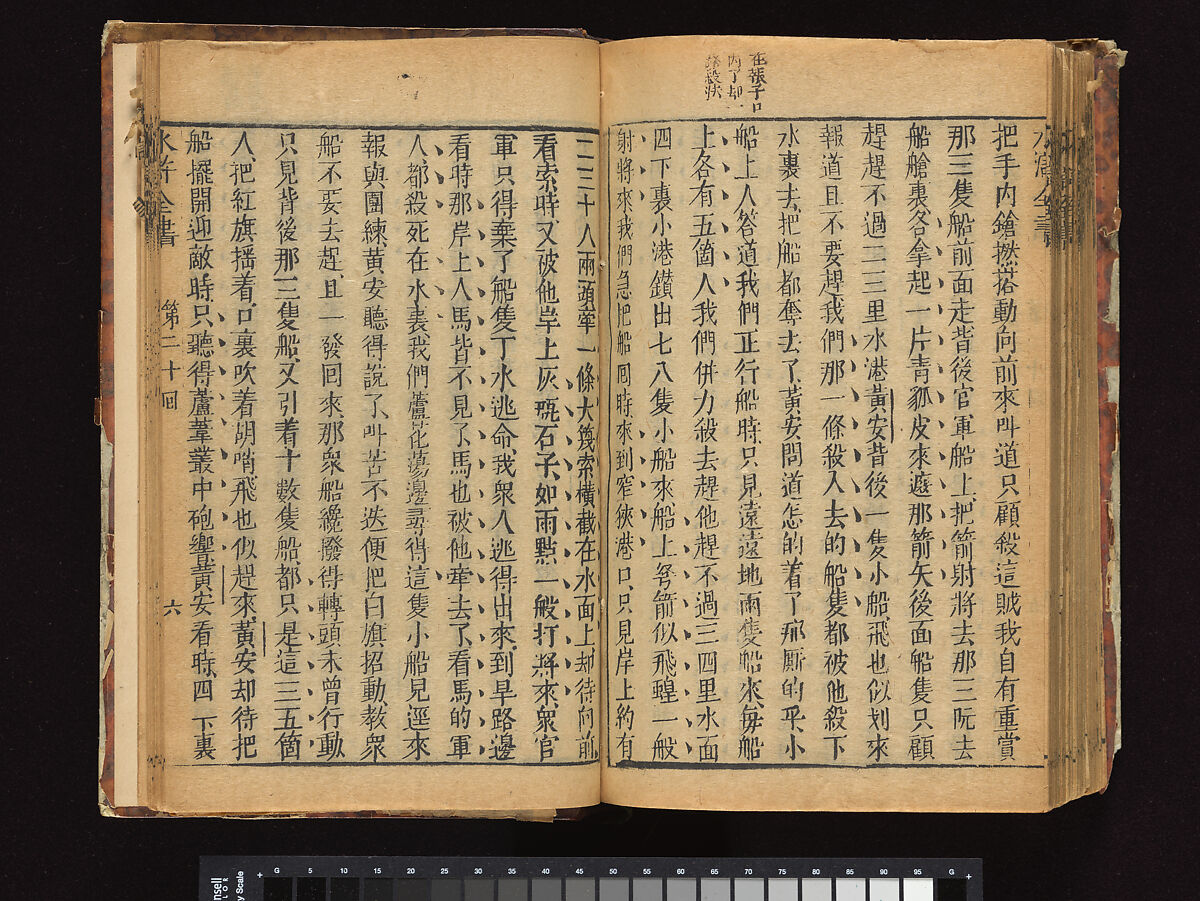 在蔡子口
内了却一
殺狀
把手内鎗撚搭動向前來叫道只顧殺這賊我自有重賞
那三隻船前面走背後官軍船上把箭射將去那三阮去
船艙裏各拿起一片青狐皮來遮那箭矢後面船隻只顧
趕趕不過二三里水港黃安背後一隻小船飛也似划來
報道且不要趕我們那一條殺入去的船隻都被他殺下
水裏去把船都奪去了黃安問道怎的着了那廝的手小
船上人答道我們正行船時只見遠遠地兩隻船來每船
上各有五箇人我們併力殺去趕他趕不過三四里水面
四下裏小港鑽出七八隻小船來船上弩箭似飛蝗一般
射將來我們急把船回時來到窄狹港口只見岸上約有
二三十人兩頭牽一條大篾索橫截在水面上却待向前
看索時又被他岸上灰瓶石子如雨點一般打將來衆官
軍只得棄了船隻下水逃命我衆人逃得出來到旱路邊
看時那岸上人馬皆不見了馬也被他牽去了看馬的軍
人都殺死在水裏我們蘆花蕩邊尋得這隻小船見逕來
報與團練黃安聽得說了叫苦不迭便把白旗招動教衆
船不要去趕且一發回來那衆船纔撥得轉頭未曾行動
只見背後那三隻船又引着十數隻船都只是這三五箇
人把紅旗搖着口裏吹着胡哨飛也似趕來黃安却待把
船擺開迎敵時只聽得蘆葦叢中砲響黃安看時四下裏
水滸全書 第二十回 六